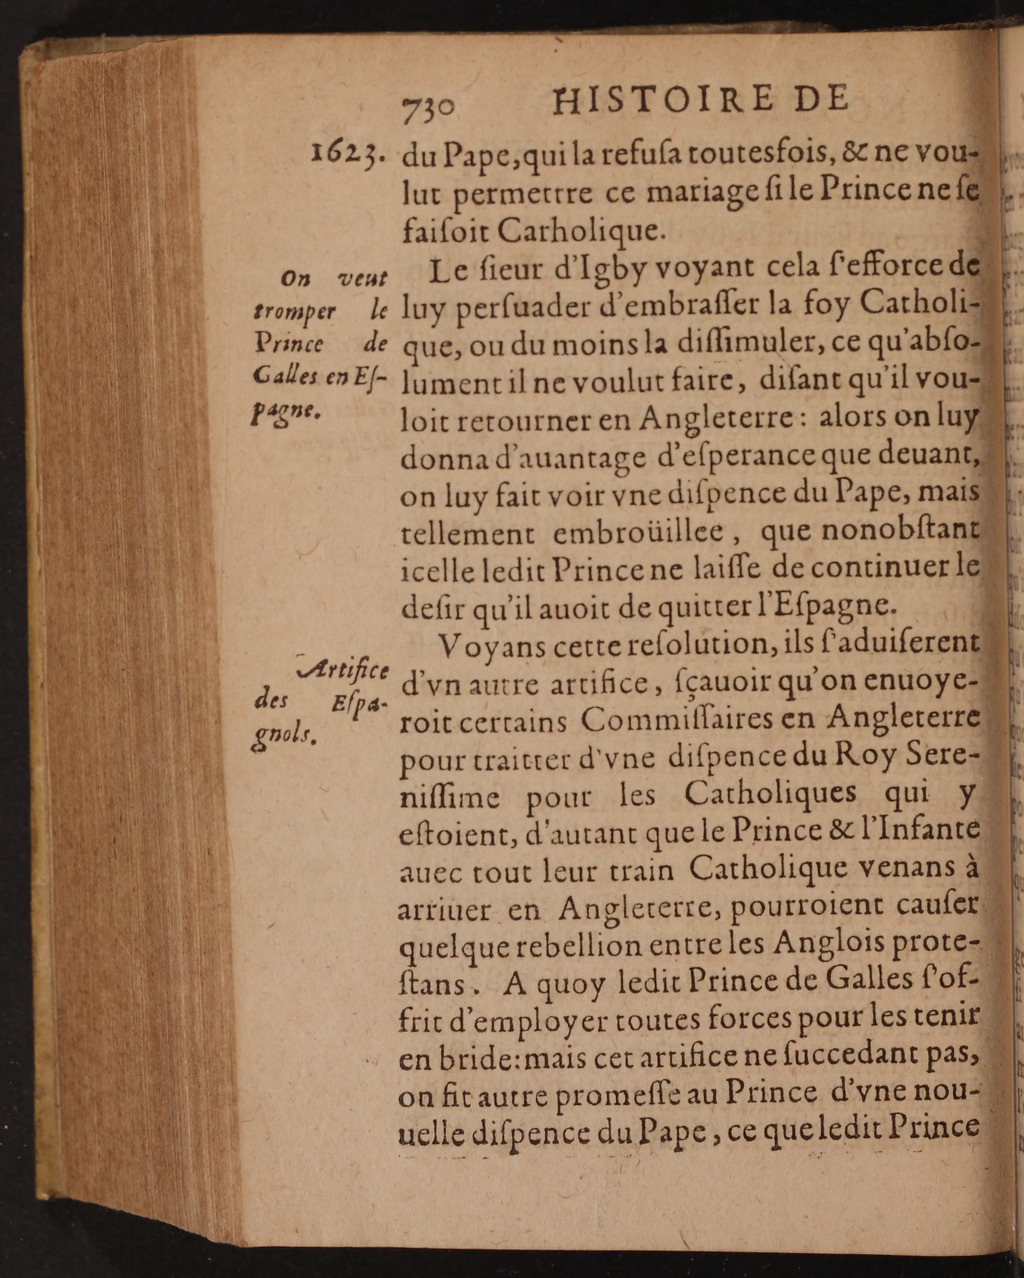 730 HISTOIRE DE
1623. du Pape, qui la refuſa toutesfois, & ne vou-
lut permettre ce mariage ſi le Prince ne ſe
faiſoit Catholique.
On veut
tromper le
Prince de
Galles en Eſ-
pagne.
Le ſieur d'Igby voyant cela ſ'efforce de
luy perſuader d'embraſſer la foy Catholi-
que, ou du moins la diſſimuler, ce qu'abſo-
lument il ne voulut faire, diſant qu'il vou-
loit retourner en Angleterre : alors on luy
donna d'auantage d'eſperance que deuant,
on luy fait voir vne diſpence du Pape, mais
tellement embroüillee, que nonobſtant
icelle ledit Prince ne laiſſe de continuer le
deſir qu'il auoit de quitter l'Eſpagne.
Artifice
des Eſpa-
gnols.
Voyans cette reſolution, ils ſ'aduiſerent
d'vn autre artifice, ſçauoir qu'on enuoye-
roit certains Commiſſaires en Angleterre
pour traitter d'vne diſpence du Roy Sere-
niſſime pour les Catholiques qui y
eſtoient, d'autant que le Prince & l'Infante
auec tout leur train Catholique venans à
arriuer en Angleterre, pourroient cauſer
quelque rebellion entre les Anglois prote-
ſtans. A quoy ledit Prince de Galles ſ'of-
frit d'employer toutes forces pour les tenir
en bride: mais cet artifice ne ſuccedant pas,
on fit autre promeſſe au Prince d'vne nou-
uelle diſpence du Pape, ce que ledit Prince